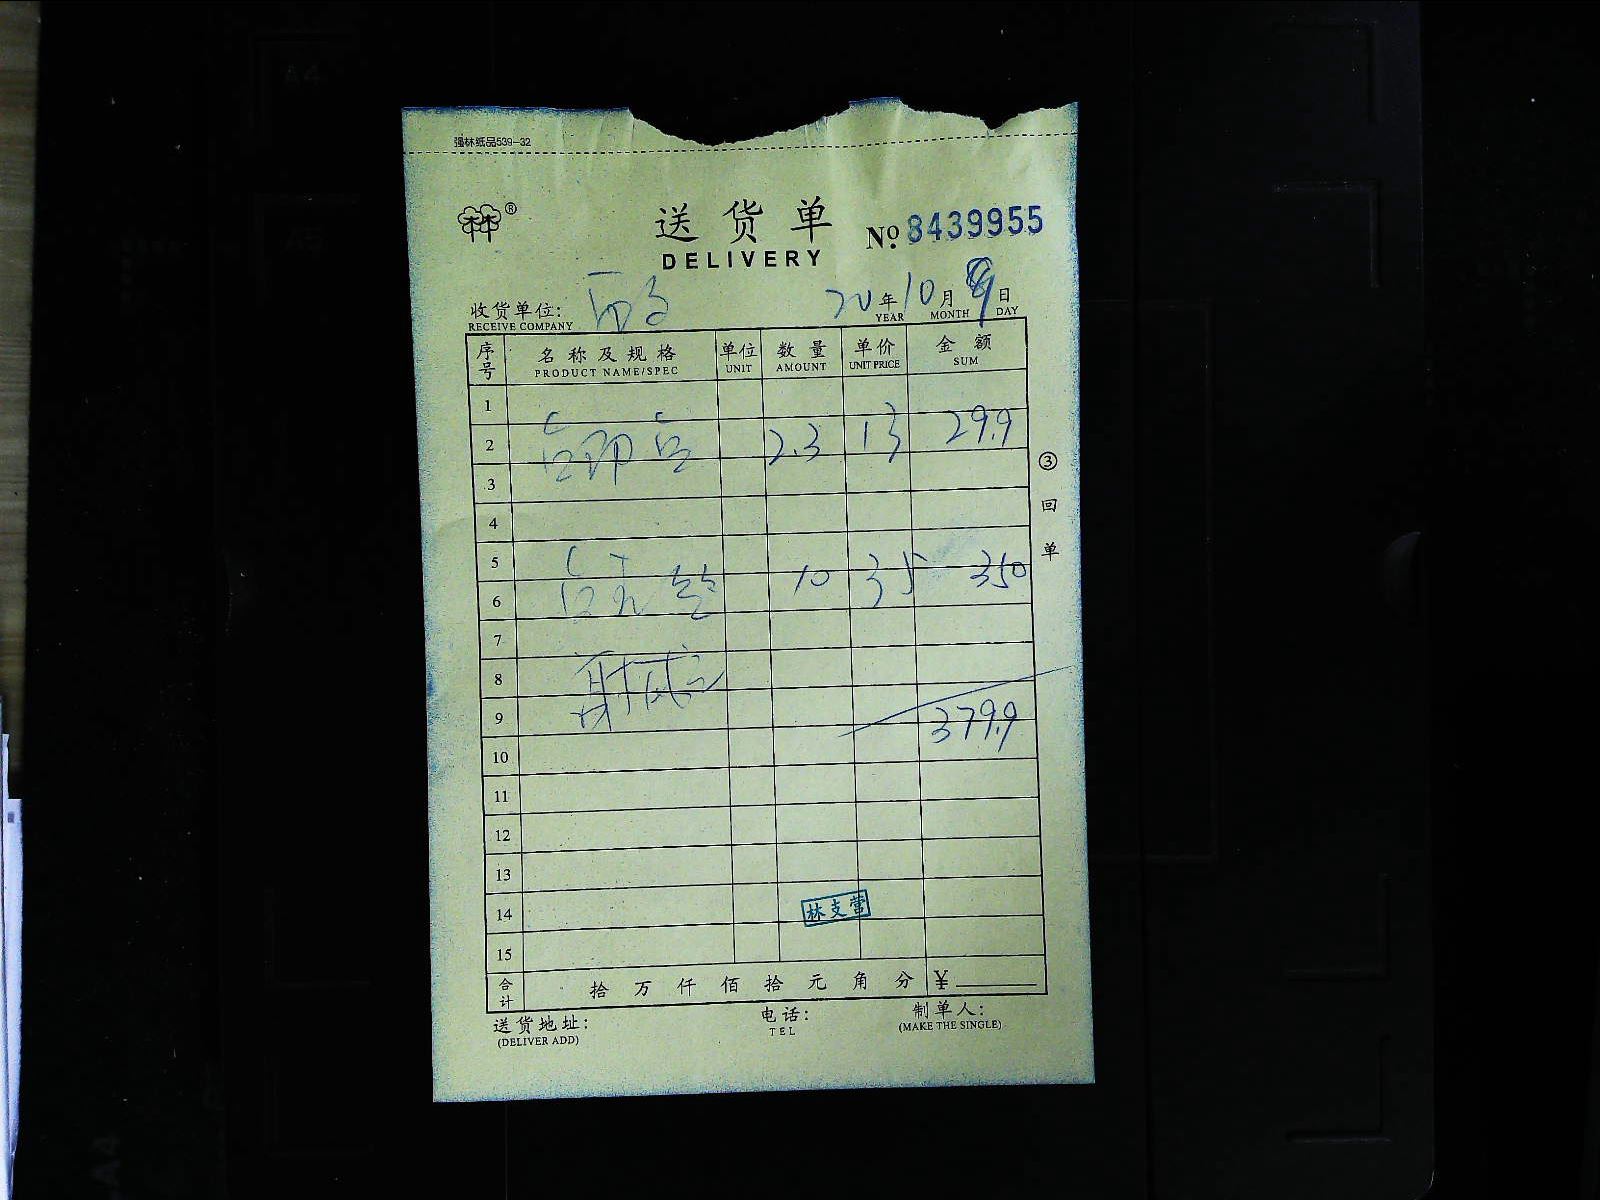 强林纸品539-32
林林®
送货单
№ 8439955
DELIVERY
收货单位:
20年10月9日
RECEIVE COMPANY
YEAR MONTH DAY
序号 名称及规格 单位 数量 单价 金额
PRODUCT NAME/SPEC UNIT AMOUNT UNIT PRICE SUM
1
2 2.3 13 29.9
3
4
5
6 10 35 350
7
8
9 379.9
10
11
12
13
14 林支营
15
③回单
合计 拾万仟佰拾元角分 ¥
送货地址: 电话: 制单人:
(DELIVER ADD) TEL (MAKE THE SINGLE)